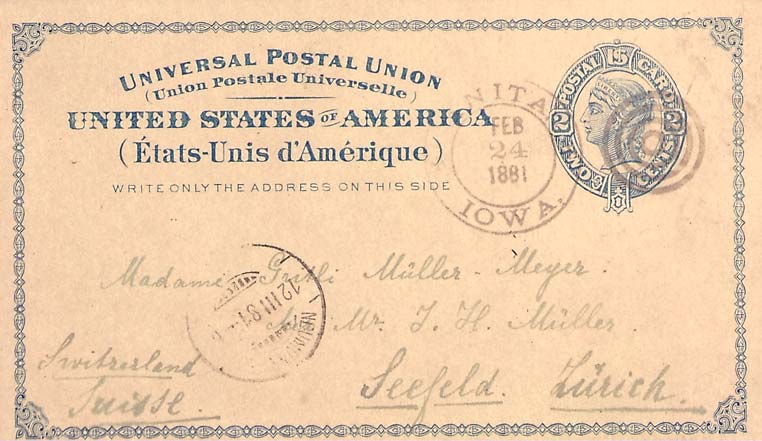 UNIVERSAL POSTAL UNION
(Union Postale Universelle)
UNITED STATES OF AMERICA
(États-Unis d'Amérique)
WRITE ONLY THE ADDRESS ON THIS SIDE
NITA
FEB
24
1881
IOWA.
U S POSTAL CARD
2 2
TWO CENTS
Madame Gritli Müller-Meyer.
Mr. J. H. Müller.
Seefeld. Zürich.
Switzerland
Suisse.
12 III 81